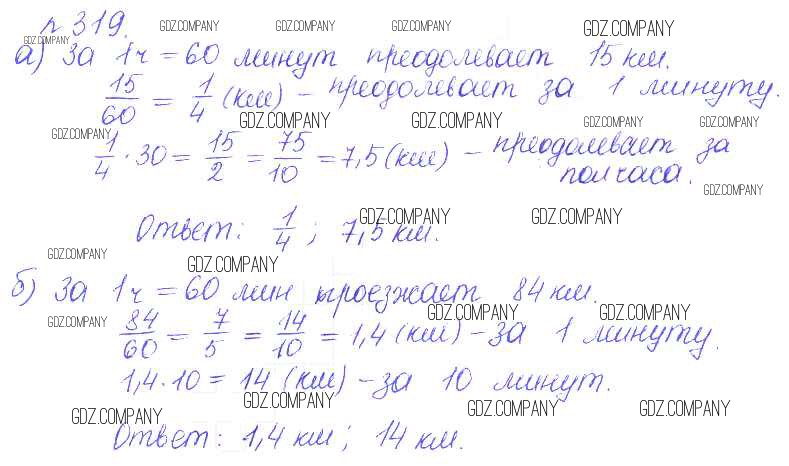 № 319.
GDZ.COMPANY GDZ.COMPANY GDZ.COMPANY GDZ.COMPANY
GDZ.COMPANY
а) За 1ч = 60 минут преодолевает 15 км.
15/60 = 1/4 (км) – преодолевает за 1 минуту.
GDZ.COMPANY GDZ.COMPANY GDZ.COMPANY GDZ.COMPANY
GDZ.COMPANY
1/4 · 30 = 15/2 = 75/10 = 7,5 (км) – преодолевает за
полчаса.
GDZ.COMPANY
GDZ.COMPANY GDZ.COMPANY
Ответ: 1/4 ; 7,5 км.
GDZ.COMPANY
GDZ.COMPANY
б) За 1ч = 60 мин проезжает 84 км.
GDZ.COMPANY GDZ.COMPANY
GDZ.COMPANY
84/60 = 7/5 = 14/10 = 1,4 (км) – за 1 минуту.
1,4 · 10 = 14 (км) – за 10 минут.
GDZ.COMPANY GDZ.COMPANY GDZ.COMPANY
GDZ.COMPANY
Ответ: 1,4 км ; 14 км.